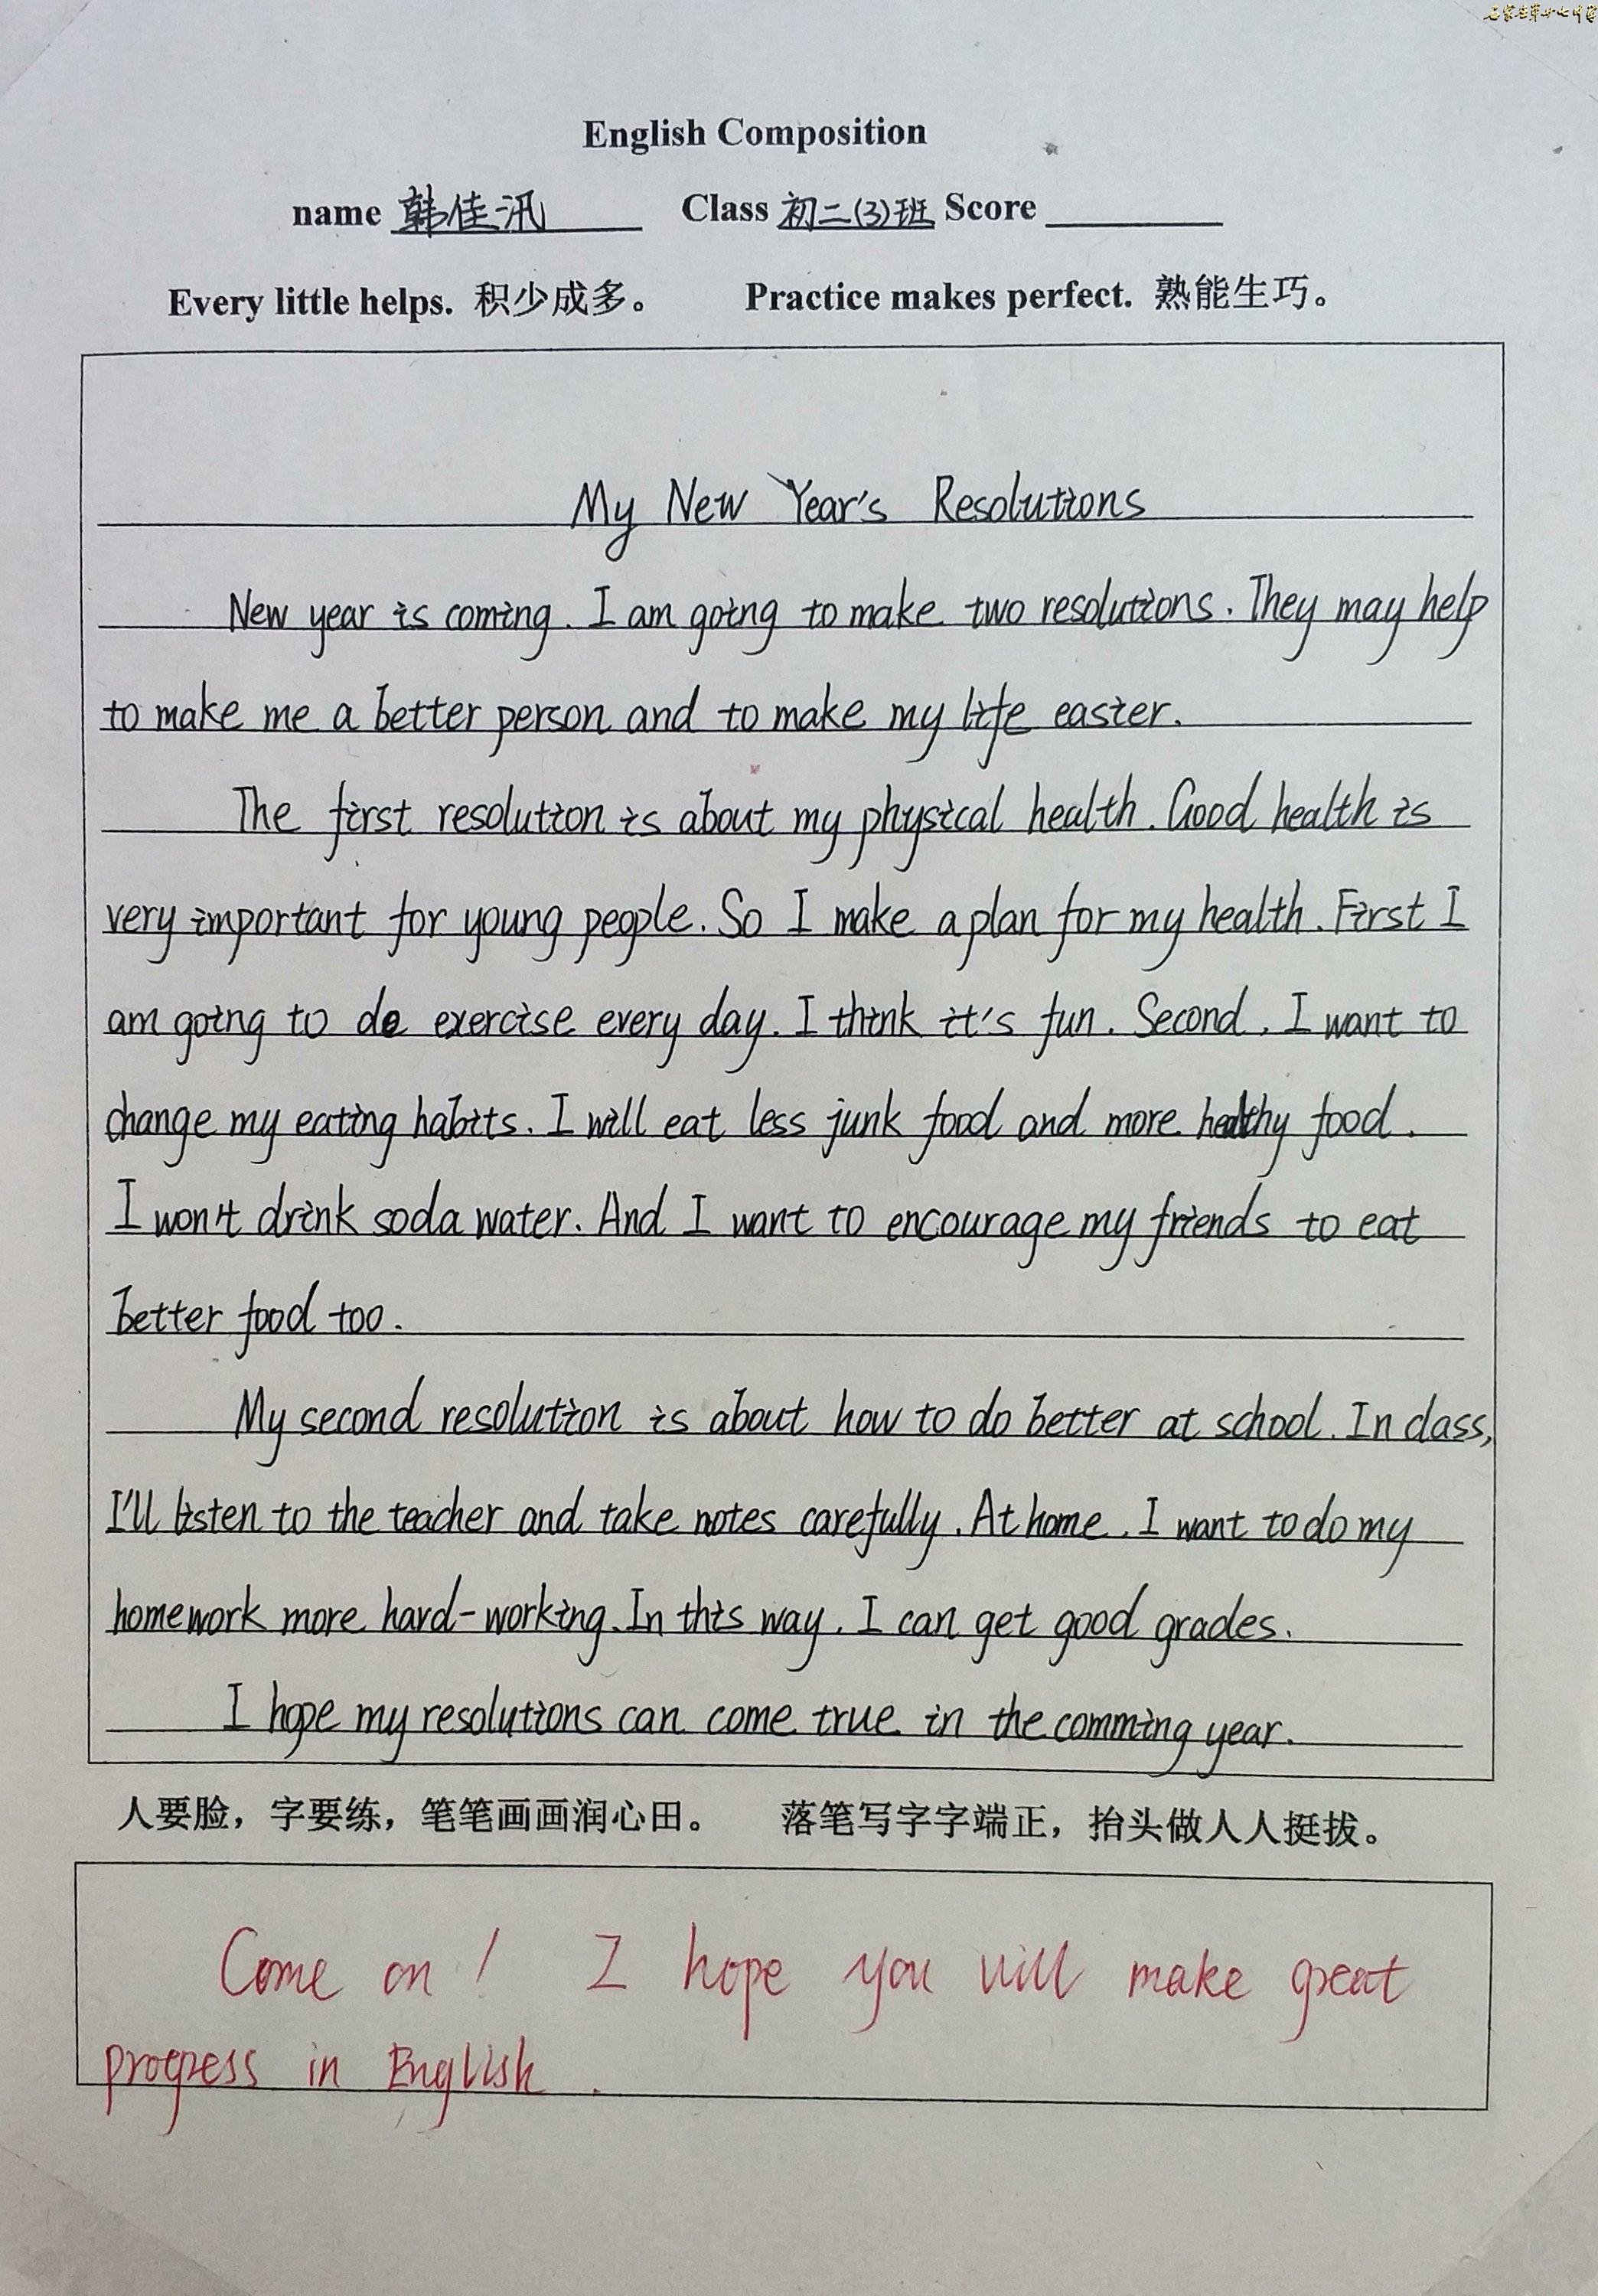 石家庄第廿七中学
English Composition
name 韩佳汛 Class 初二(3)班 Score
Every little helps. 积少成多。 Practice makes perfect. 熟能生巧。
My New Year's Resolutions
New year is coming. I am going to make two resolutions. They may help
to make me a better person and to make my life easier.
The first resolution is about my physical health. Good health is
very important for young people. So I make a plan for my health. First I
am going to do exercise every day. I think it's fun. Second, I want to
change my eating habits. I will eat less junk food and more healthy food.
I won't drink soda water. And I want to encourage my friends to eat
better food too.
My second resolution is about how to do better at school. In class,
I'll listen to the teacher and take notes carefully. At home, I want to do my
homework more hard-working. In this way, I can get good grades.
I hope my resolutions can come true in the comming year.
人要脸，字要练，笔笔画画润心田。 落笔写字字端正，抬头做人人挺拔。
Come on! I hope you will make great
progress in English.